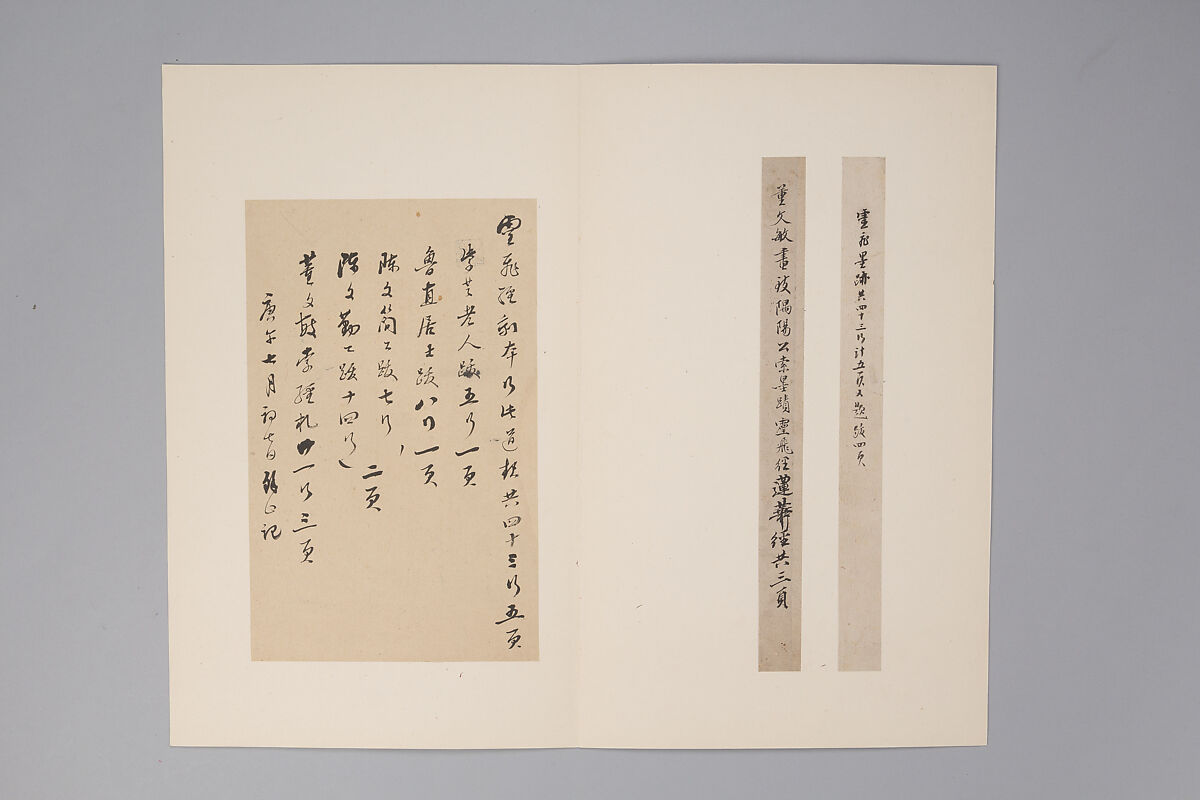 靈飛墨跡共四十三行計五頁又題跋四頁
董文敏書後隅陽公索墨蹟靈飛经蓮華经共三頁
靈飛經刻本行此道杖共四十三行五頁
老人跋五行一頁
魯直居士跋八行一頁
陳文簡公跋七行
陳文勤公跋十四行 二頁
董文敏索經札 一行三頁
庚午七月初七日 記